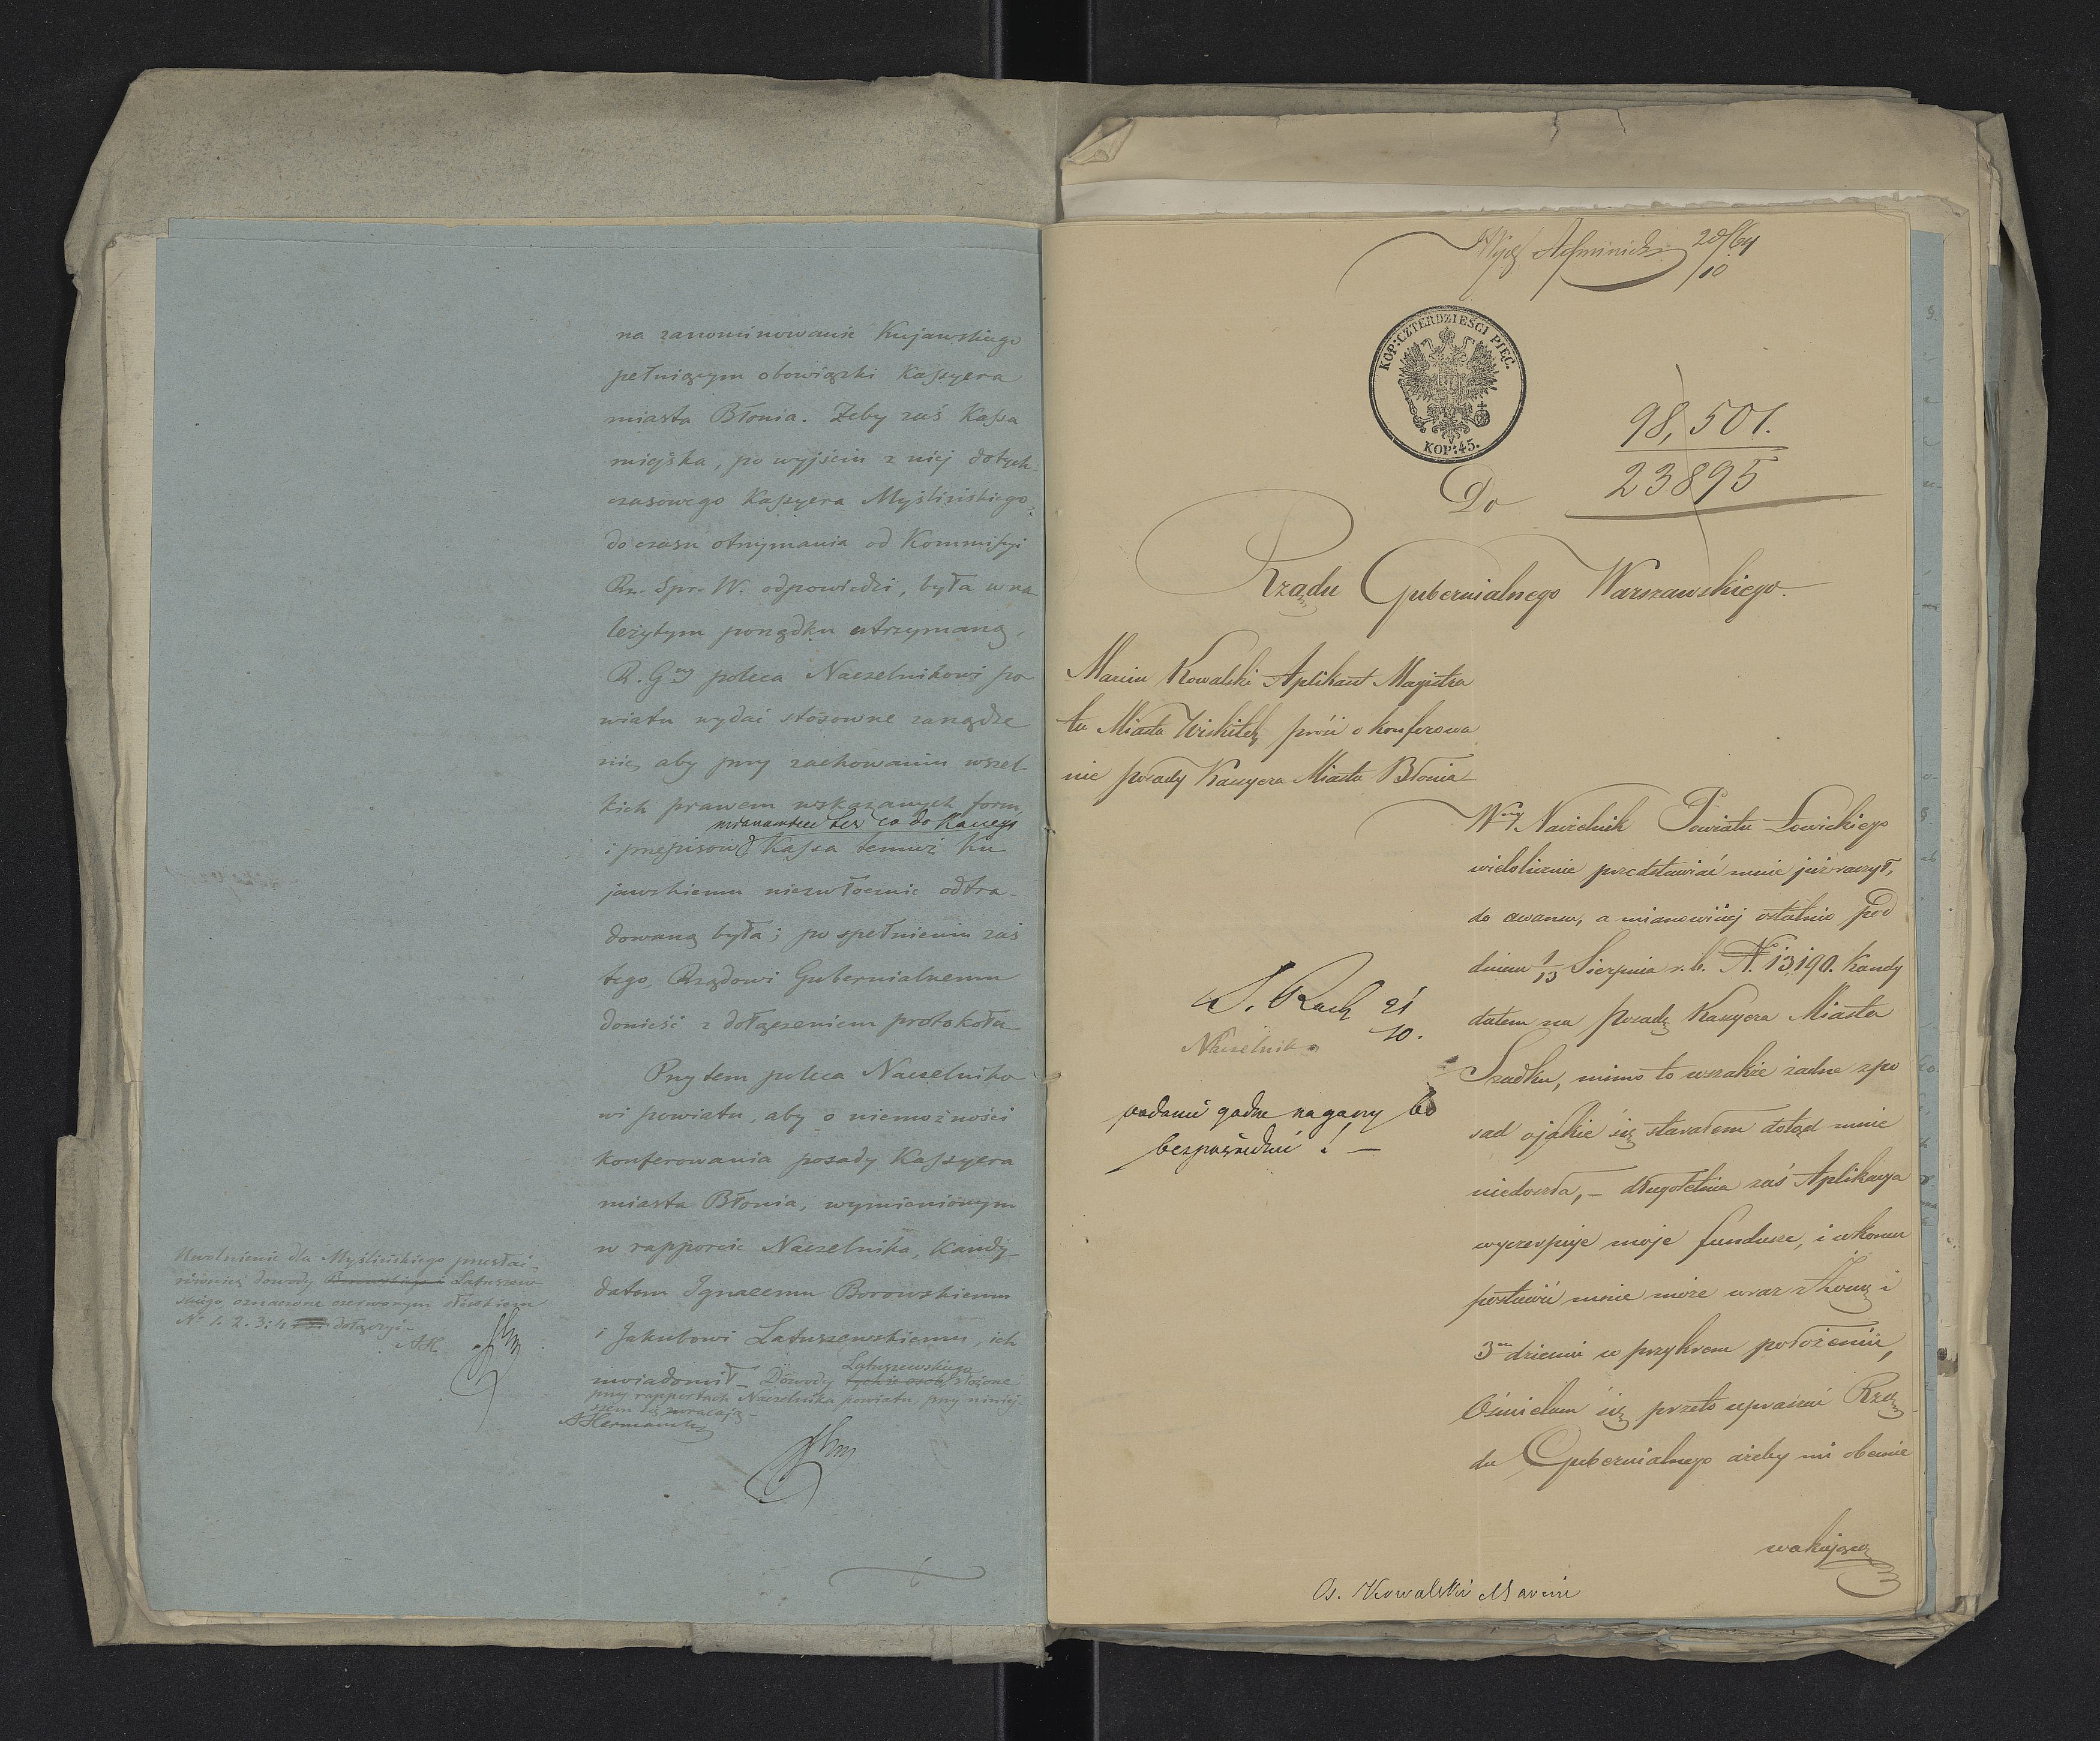 na zanominowanie Kujawskiego
pełniącym obowiązki Kassyera
miasta Błonia. Żeby zaś Kassa
miejska, po wyjściu z niej dotych-
czasowego Kassyera Myślińskiego,
do czasu otrzymania od Kommissyi
Rz. Spr. W. odpowiedzi, była w na
leżytym porządku utrzymaną,
R. Gny poleca Naczelnikowi po
wiatu wydać stósowne zarządze
nie, aby przy zachowaniu wszel-
kich prawem wskazanych form
mianowicie też co do Kaucyi
i przepisów Kassa temuż Ku
jawskiemu niezwłocznie odtra-
dowaną była; po spełnieniu zaś
tego, Rządowi Gubernialnemu
donieść z dołączeniem protokołu
Przytem poleca Naczelniko
wi powiatu, aby o niemożności
konferowania posady Kassyera
miasta Błonia, wymienionym
w rapporcie Naczelnika, Kandy
datom Ignacemu Borowskiemu
i Jakubowi Latuszewskiemu, ich
Latuszewskiego
uwiadomił – Dowody tychże osób złożone
przy rapportach Naczelnika powiatu przy niniej-
szem się zwracają –
AHermanik
Uwolnienie dla Myślińskiego przesłać –
również dowody Borowskiego i Latuszew
skiego oznaczone czerwonym ołówkiem
No 1. 2. 3. 4 dołączyć –
AH
20/10 64
KOP: CZTERDZIEŚCI PIĘĆ.
KOP: 45.
98,501.
23895
Do
Rządu Gubernialnego Warszawskiego.
Marcin Kowalski Aplikant Magistra
tu Miasta Wiskitek prósi o konferowa
nie posady Kassyera Miasta Błonia
Wny Naczelnik Powiatu Łowickiego
wielolicznie przedstawiać mnie już raczył,
do awansu, a mianowiciej ostatnio pod
dniem 1/13 Sierpnia r. b. No 13,190. Kandy
datem na posadę Kassyera Miasta
Szadku, mimo to wszakże żadna z po
sad o jakie się starałem dotąd mnie
niedoszła, – długoletnia zaś Aplikacya
wyczerpuje moje fundusze, i w koncu
postawić mnie może wraz z Żoną i
3m dziećmi w przykrem położeniu,
Ośmielam się przeto upraszać Rzą
du Gubernialnego ażeby mi obecnie
wakującą
S. Rach 21
10.
Naczelnik
podanie godne nagany bo
bezpośrednie! –
As. Kowalski Marcin